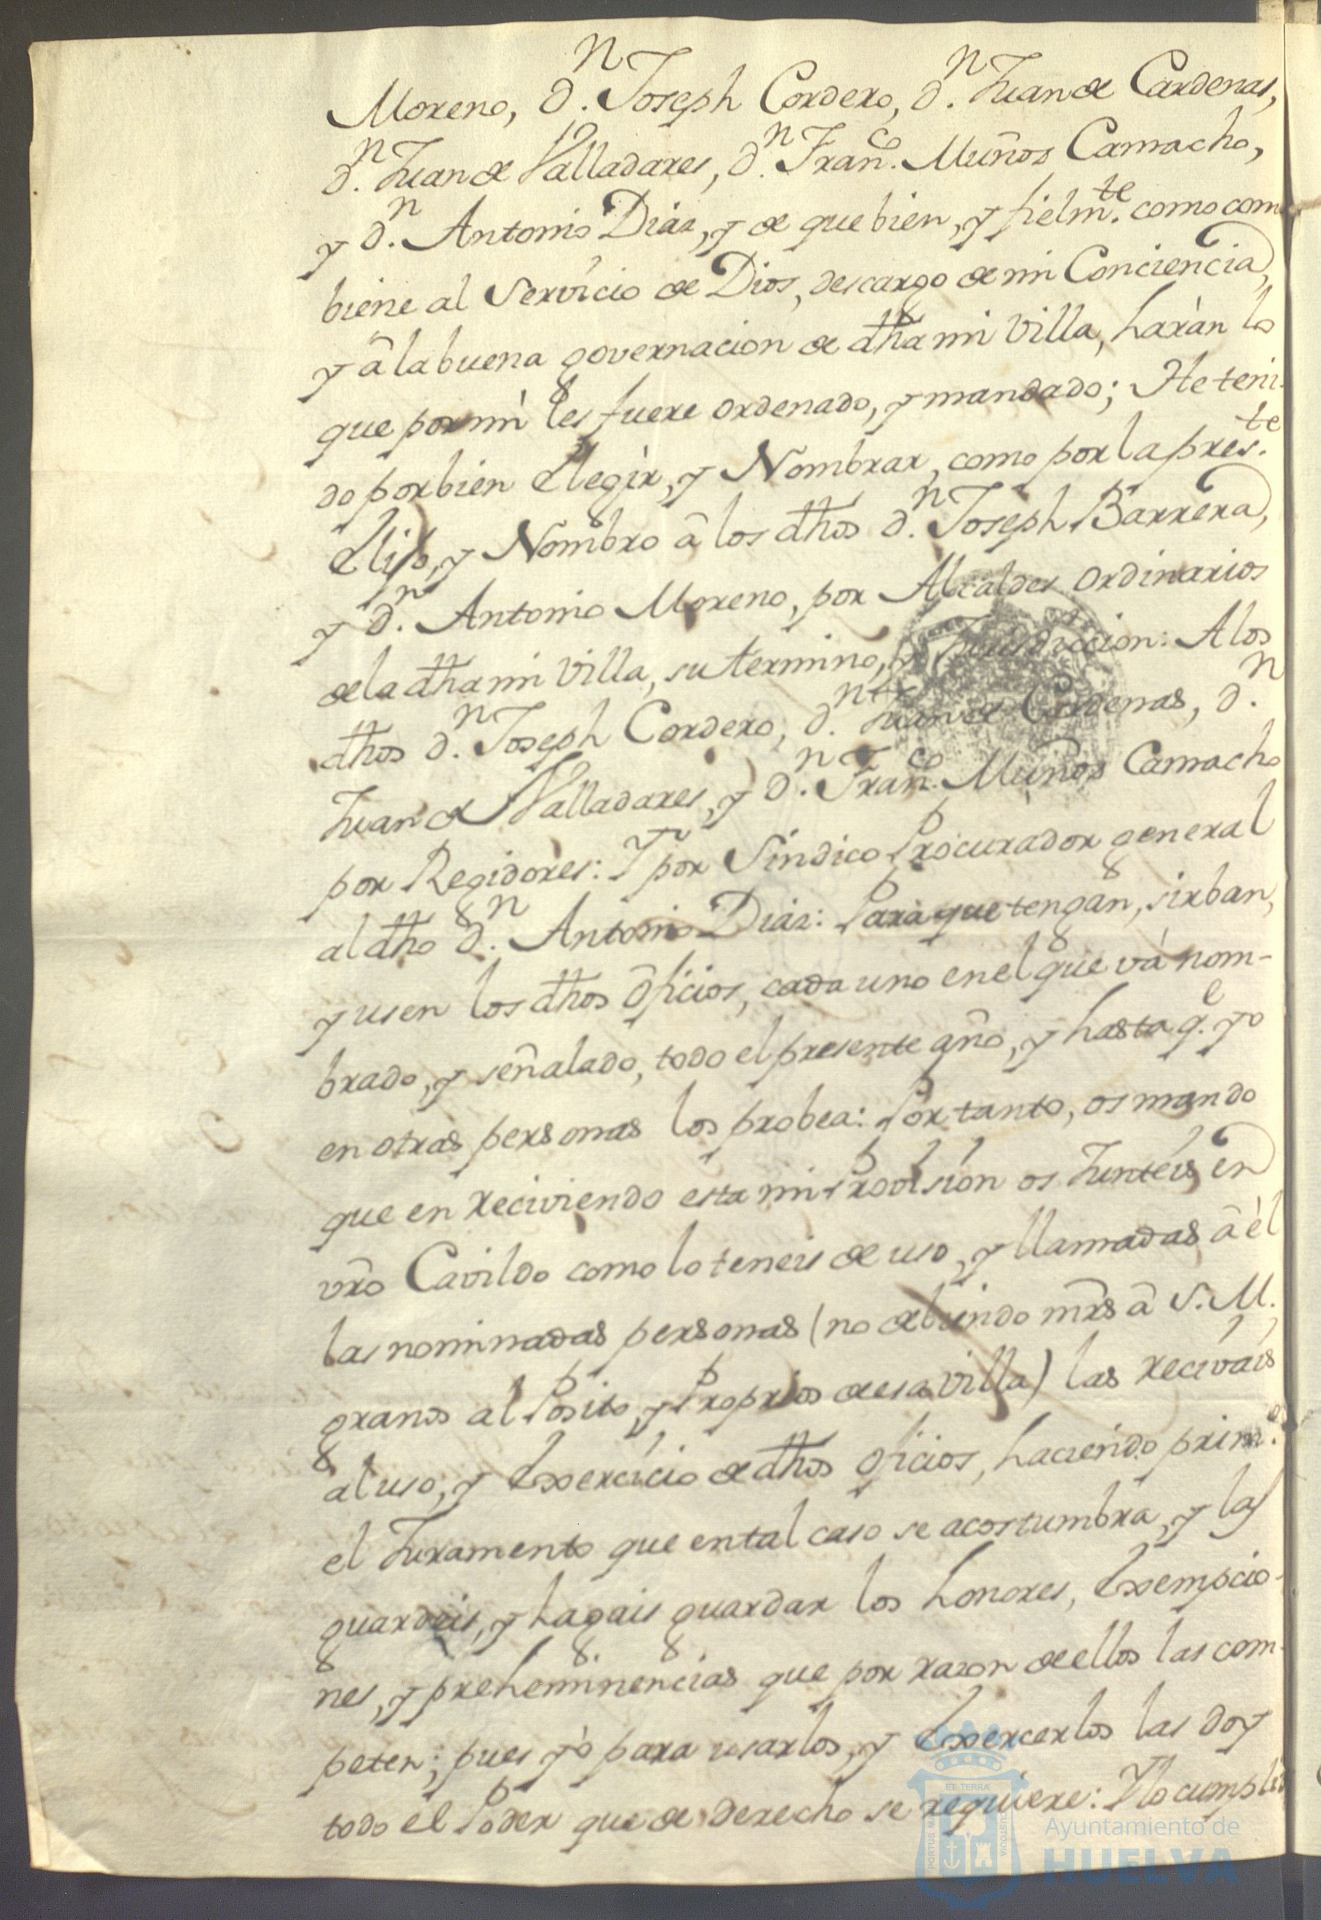 Moreno, d.n Joseph Cordero, d.n Juan de Cardenas,
d.n Juan de Valladares, d.n Fran.co Muños Camacho,
y d.n Antonio Diaz, y de que bien, y fielm.te como com
biene al Servicio de Dios, descargo de mi Conciencia,
y â la buena governacion de dha mi Villa, haràn lo
que por mi les fuere ordenado, y mandado; He teni-
do por bien Elegir, y Nombrar, como por la pres.te
Elijo, y Nombro â los dhos d.n Joseph Barrera,
y d.n Antonio Moreno, por Alcaldes ordinarios
de la dha mi Villa, su termino, y Jurisdiccion: A los
dhos d.n Joseph Cordero, d.n Juan de Cardenas, d.n
Juan de Valladares, y d.n Fran.co Muños Camacho
por Regidores: Y por Sindico Procurador general
al dho d.n Antonio Diaz: Para que tengan, sirban,
y usen los dhos oficios, cada uno en el que và nom-
brado, y señalado, todo el presente año, y hasta q.e yo
en otras personas los probea: Por tanto, os mando
que en reciviendo esta mi Provision os Junteis en
vro Cavildo como lo teneis de uso, y llamadas â èl
las nominadas personas (no debiendo mrs â S. M.,
granos al Posito, y Proprios de esa Villa) las recivàis
al uso, y Exercicio de dhos oficios, haciendo prim.o
el Juramento que en tal caso se acostumbra, y las
guardeis, y hagais guardar los honores, Exempcio-
nes, y preheminencias que por razon de ellos las com-
peten; pues yò para usarlos, y Exercerlos las doy
todo el Poder que de derecho se requiere: Y lo cumpli
ET TERRÆ
Ayuntamiento de
HUELVA